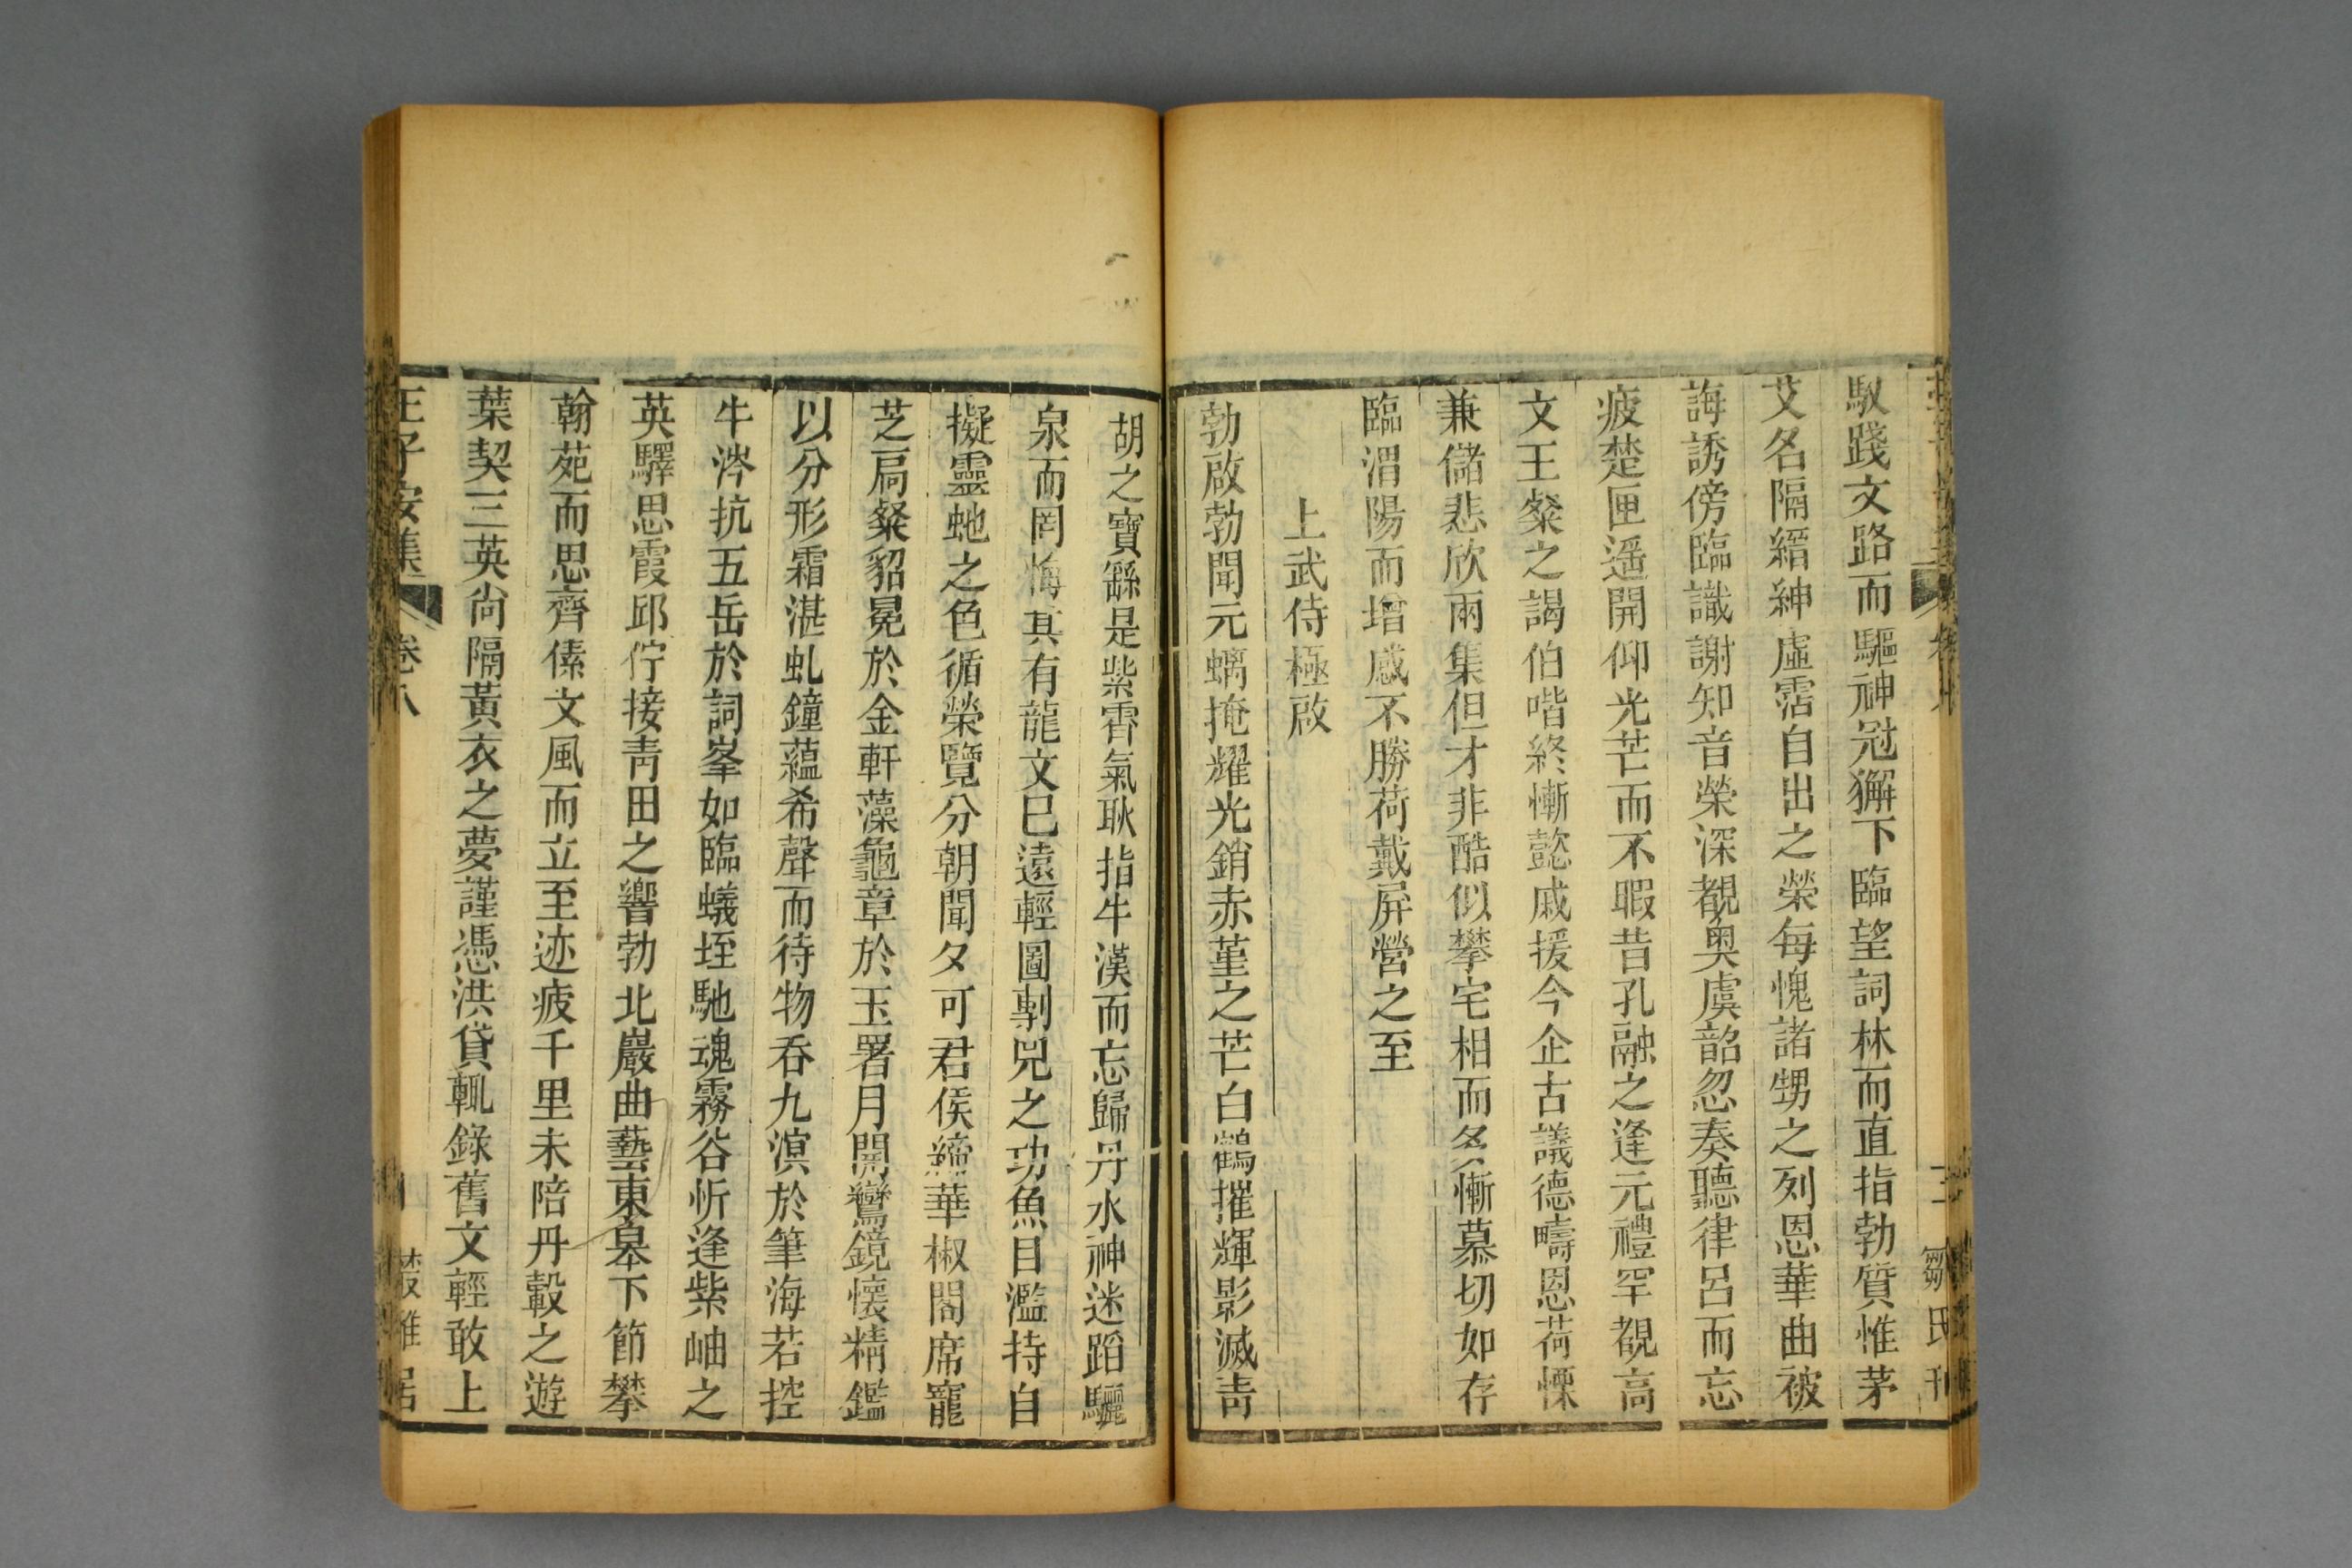 馭踐文路而驅神冠獬下臨望詞林而直指勃質惟茅
艾名隔縉紳虛霑自出之榮每愧諸甥之列恩華曲被
誨誘傍臨識謝知音榮深覩奧虞韶忽奏聽律呂而忘
疲楚匣遥開仰光芒而不暇昔孔融之逢元禮罕覩高
文王粲之謁伯喈終慚懿戚援今企古議德疇恩荷慄
兼儲悲欣兩集但才非酷似攀宅相而多慚慕切如存
臨渭陽而增感不勝荷戴屏營之至
上武侍極啟
勃啟勃聞元螭掩耀光銷赤堇之芒白鶴摧輝影滅青
胡之寶繇是紫霄氣耿指牛漢而忘歸丹水神迷蹈驪
泉而罔悔其有龍文已遠輕圖剸兕之功魚目濫持自
擬靈虵之色循榮覽分朝聞夕可君侯締華椒閣席寵
芝扃粲貂冕於金軒藻龜章於玉署月開鸞鏡懷精鑑
以分形霜湛虬鐘蘊希聲而待物吞九溟於筆海若控
牛涔抗五岳於詞峯如臨蟻垤馳魂霧谷忻逢紫岫之
英驛思霞邱佇接青田之響勃北巖曲藝東臯下節攀
翰苑而思齊傃文風而立至迹疲千里未陪丹轂之遊
葉契三英尙隔黃衣之夢謹憑洪貸輒錄舊文輕敢上
王子安集 卷八